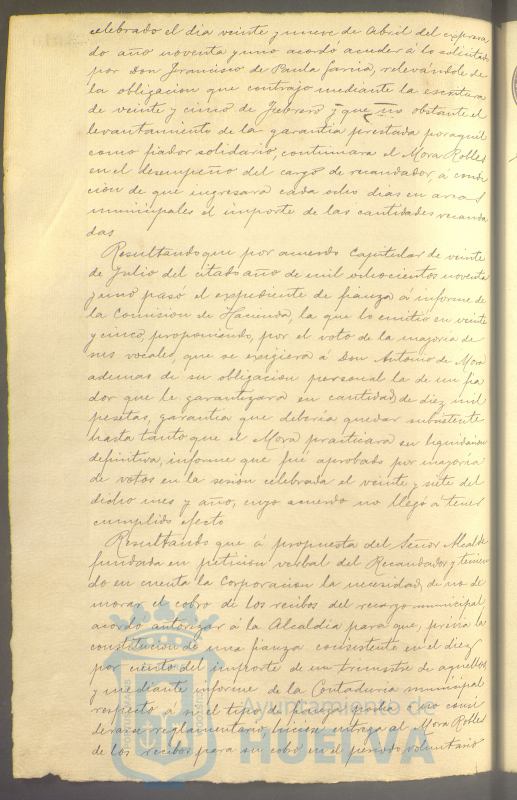 celebrado el dia veinte y nueve de Abril del expresa
do año noventa y uno acordó acceder á lo solicitado
por Don Francisco de Paula García, relevándole de
la obligacion que contrajo mediante la escritura
de veinte y cinco de Febrero y que no obstante el
levantamiento de la garantia prestada por aquél
como fiador solidario, continuara el Mora Robles
en el desempeño del cargo de recaudador, á condi
ción de que ingresara cada ocho dias en arcas
municipales el importe de las cantidades recauda
das
Resultando que por acuerdo Capitular de veinte
de Julio del citado año de mil ochocientos noventa
y uno pasó el expediente de fianza á informe de
la Comision de Hacienda, la que lo emitió en veinte
y cinco, proponiendo, por el voto de la mayoria de
sus vocales, que se exigiera á Don Antonio de Mora
ademas de su obligacion personal la de un fia
dor que le garantizara en cantidad de diez mil
pesetas, garantía que deberia quedar subsistente
hasta tanto que el Mora practicara su liquidacion
definitiva, informe que fué aprobado por mayoría
de votos en la sesion celebrada el veinte y siete del
dicho mes y año, cuyo acuerdo no llegó á tener
cumplido efecto
Resultando que á propuesta del Señor Alcalde
fundada en peticion verbal del Recaudador y tenien
do en cuenta la Corporacion la necesidad de no de
morar el cobro de los recibos del recargo municipal,
acordo autorizar á la Alcaldia para que, prévia la
constitucion de una fianza consistente en el diez
por ciento del importe de un trimestre de aquellos
y mediante informe de la Contaduria municipal
respecto á si el tipo de fianza podia ó no consi
derarse reglamentario, hiciese entrega al Mora Robles
de los recibos para su cobro en el periodo voluntario
Ayuntamiento de
HUELVA